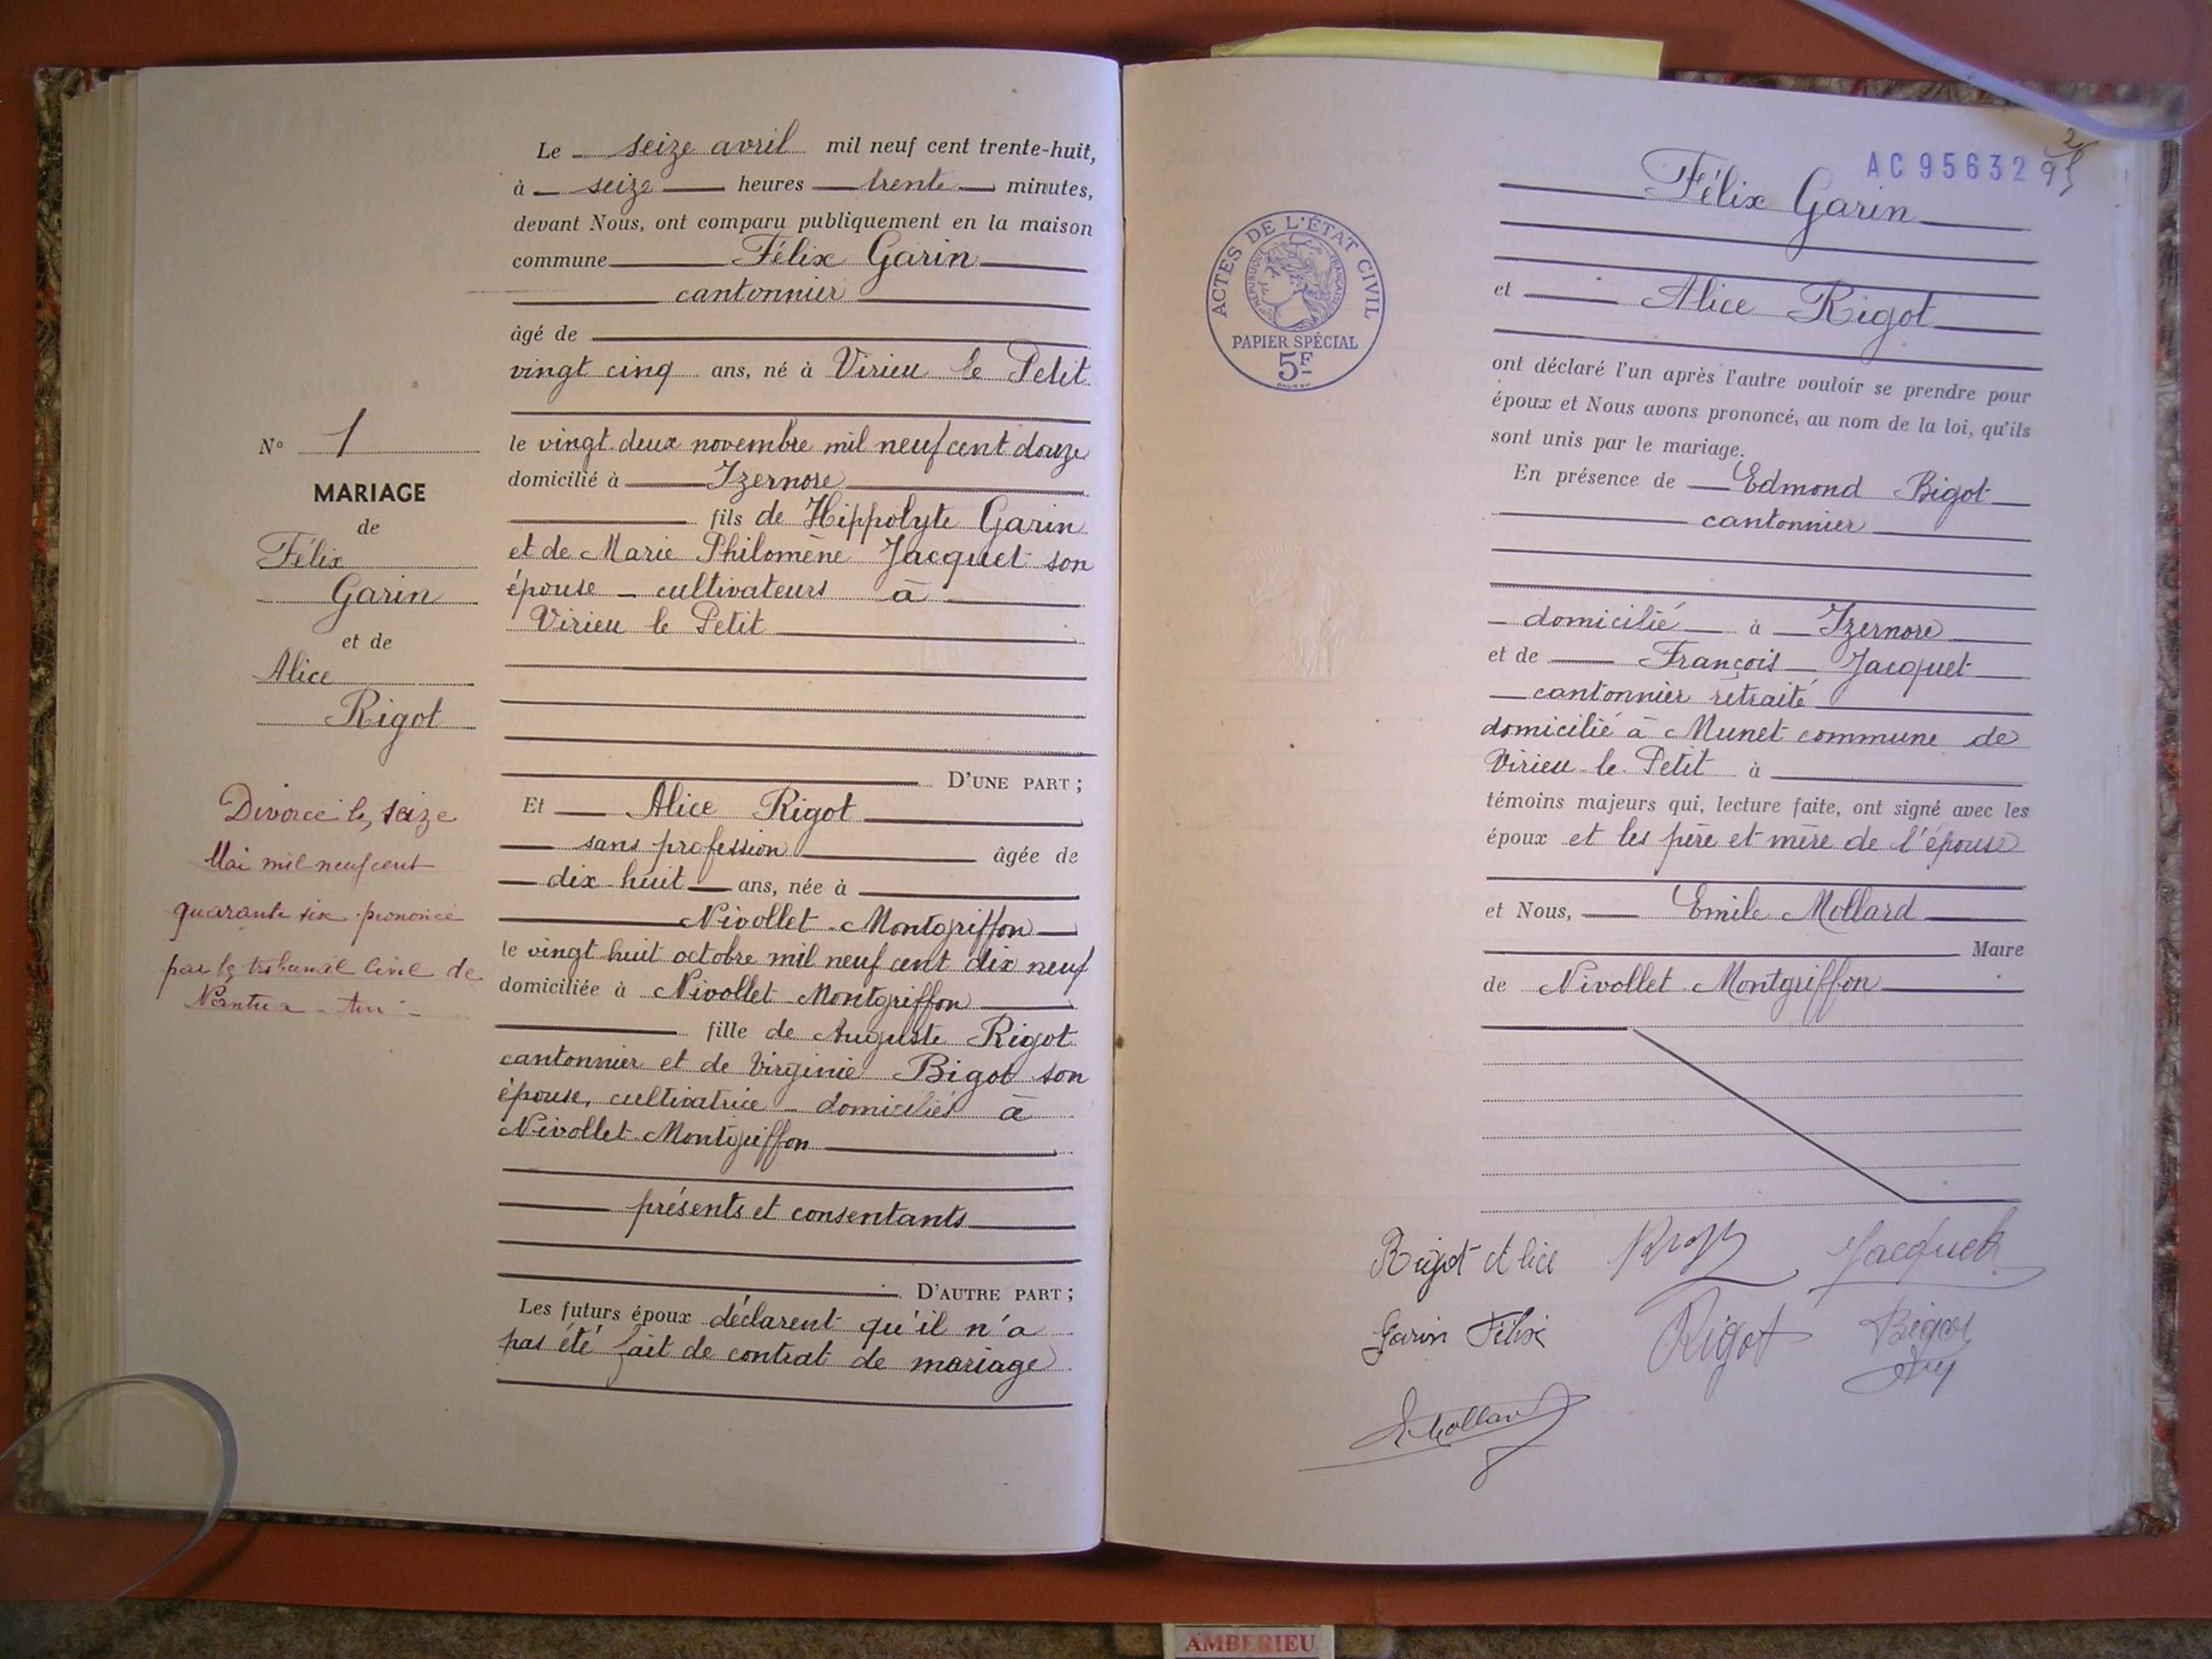 Le seize avril mil neuf cent trente-huit,
à seize heures trente minutes,
devant Nous, ont comparu publiquement en la maison
commune Félix Garin
cantonnier
âgé de
vingt cinq ans, né à Virieu le Petit
le vingt deux novembre mil neuf cent douze
domicilié à Izernore
fils de Hippolyte Garin
et de Marie Philomène Jacquet son
épouse - cultivateurs à
Virieu le Petit
D'UNE PART ;
Et Alice Rigot
sans profession âgée de
dix-huit ans, née à
Nivollet-Montgriffon
le vingt huit octobre mil neuf cent dix neuf
domiciliée à Nivollet-Montgriffon
fille de Auguste Rigot
cantonnier et de Virginie Bigot son
épouse, cultivatrice - domiciliés à
Nivollet-Montgriffon
présents et consentants
D'AUTRE PART ;
Les futurs époux déclarent qu'il n'a
pas été fait de contrat de mariage
N° 1
MARIAGE
de
Félix
Garin
et de
Alice
Rigot
Divorcé le, seize
Mai mil neuf cent
quarante six prononcé
par le tribunal civil de
Nantua - Ain -
AC 95632
2
ACTES DE L'ÉTAT CIVIL
RÉPUBLIQUE FRANÇAISE
PAPIER SPÉCIAL
5F
Félix Garin
et Alice Rigot
ont déclaré l'un après l'autre vouloir se prendre pour
époux et Nous avons prononcé, au nom de la loi, qu'ils
sont unis par le mariage.
En présence de Edmond Bigot
cantonnier
domicilié à Izernore
et de François Jacquet
cantonnier retraité
domicilié à Munet commune de
Virieu-le-Petit à
témoins majeurs qui, lecture faite, ont signé avec les
époux et les père et mère de l'épouse
et Nous, Emile Mollard
Maire
de Nivollet-Montgriffon
Rigot Alice Jacquet
Garin Félix Rigot Bigot
E Mollard
AMBERIEU